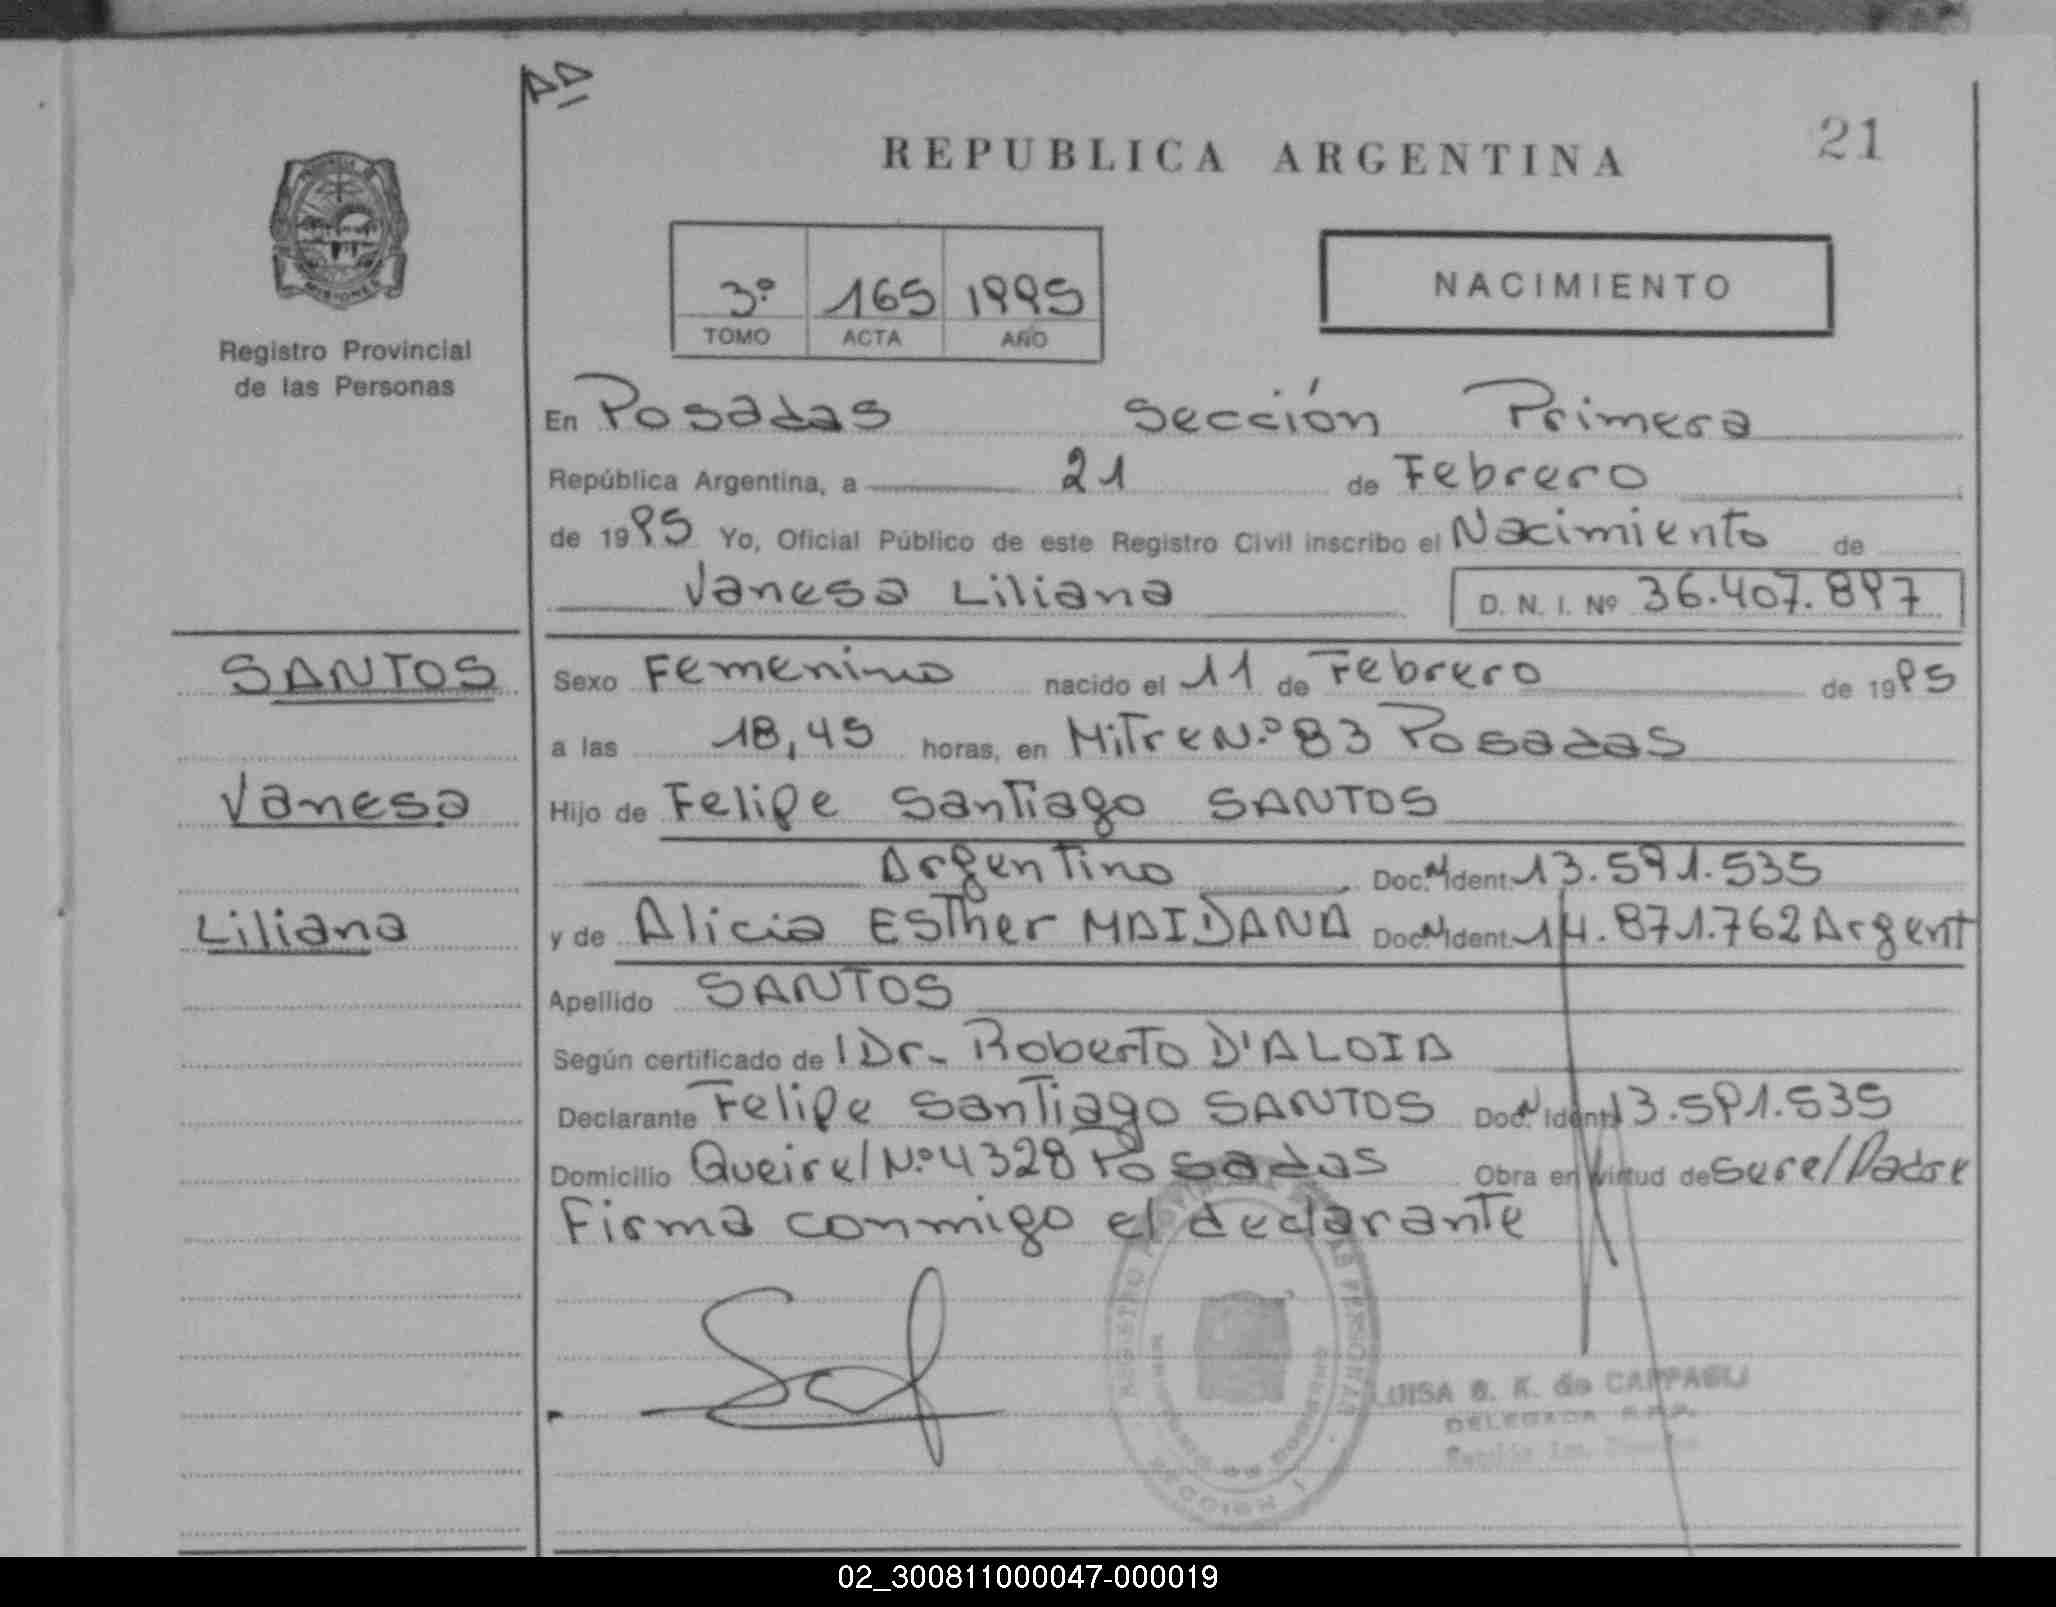 AA
REPUBLICA ARGENTINA
21
MISIONES
Registro Provincial
de las Personas
3º 165 1995
TOMO ACTA AÑO
NACIMIENTO
En Posadas Sección Primera
República Argentina, a 21 de Febrero
de 1995 Yo, Oficial Público de este Registro Civil inscribo el Nacimiento de
Vanesa Liliana D. N. I. Nº 36.407.897
SANTOS
Vanesa
Liliana
Sexo Femenino nacido el 11 de Febrero de 1995
a las 18,45 horas, en Mitre N.º 83 Posadas
Hijo de Felipe Santiago SANTOS
Argentino Doc. N Ident. 13.591.535
y de Alicia Esther MAIDANA Doc. N Ident. 14.871.762 Argent
Apellido SANTOS
Según certificado de Dr. Roberto D'ALOIA
Declarante Felipe Santiago SANTOS Doc. N Ident. 13.591.535
Domicilio Queirel N.º 4328 Posadas Obra en virtud de ser el Padre
Firma conmigo el declarante
REGISTRO PROVINCIAL DE LAS PERSONAS
SECCION 1
LUISA B. K. de CAPPAGLI
DELEGADA R.P.P.
02_300811000047-000019